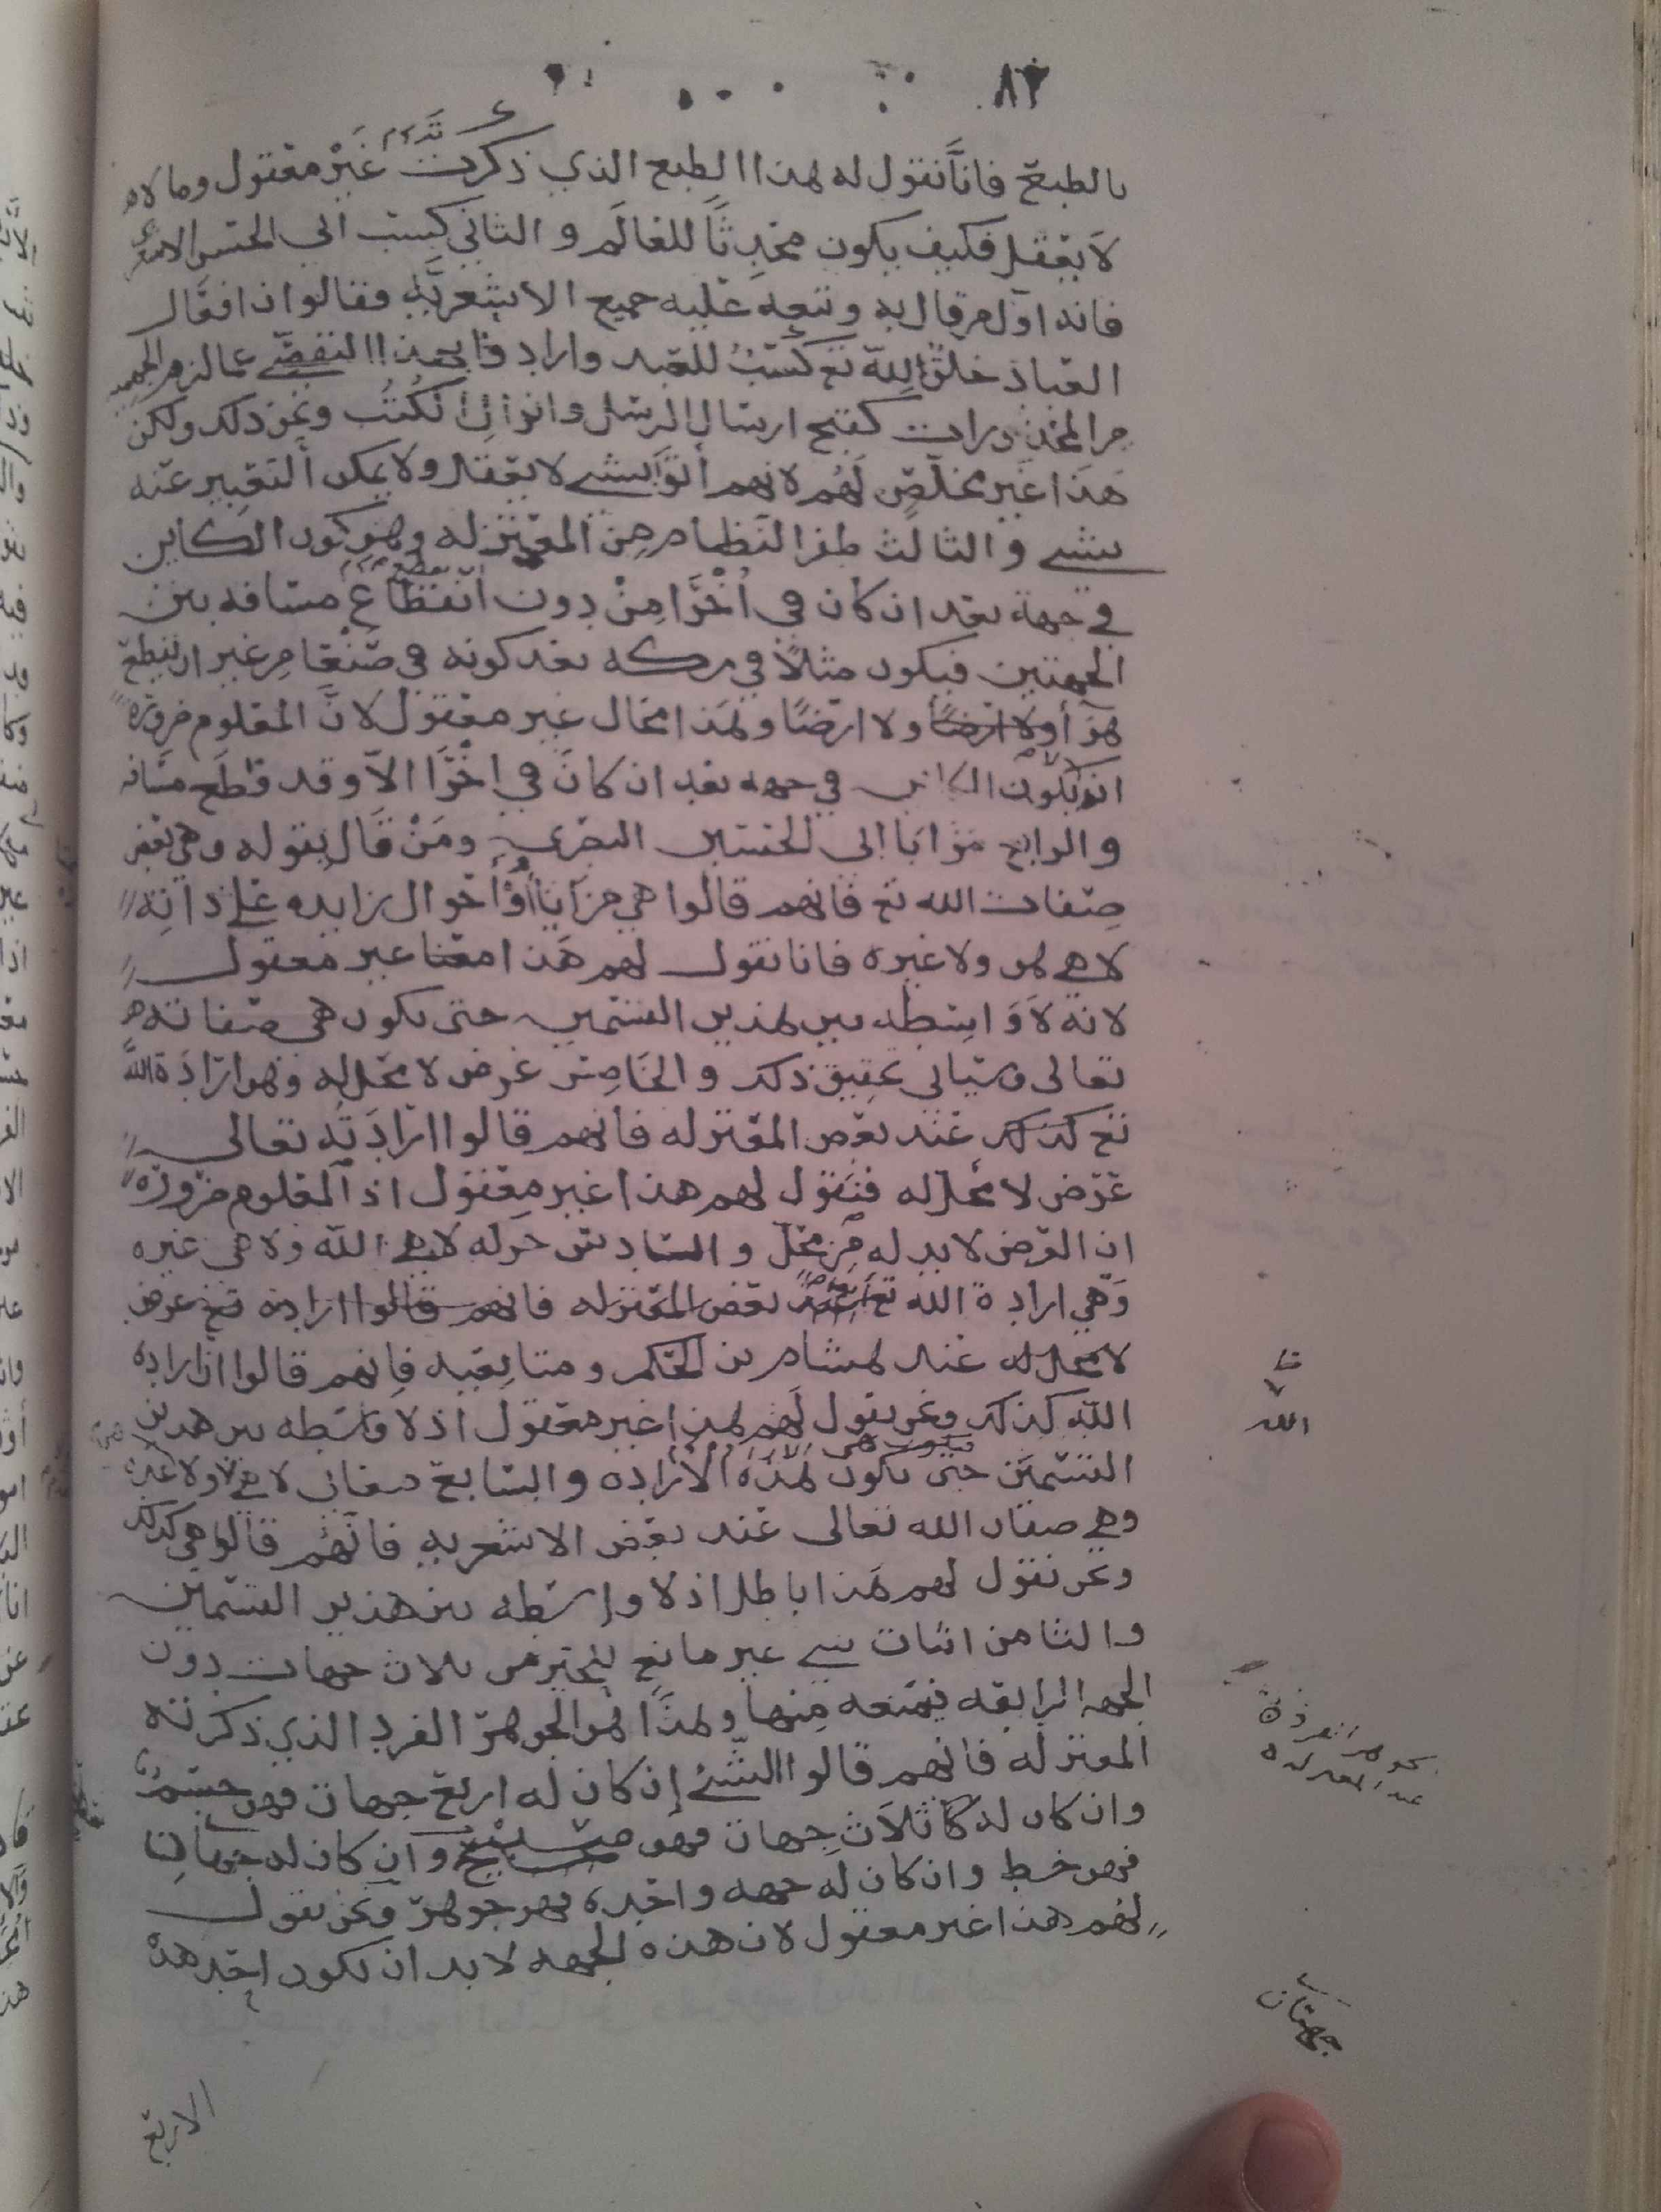 ٨٣
بالطبع فانا نقول له هذا الطبع الذي ذكرت غير معقول وما
لا يعقل فكيف يكون محدثا للعالم والثاني كسب ابي الحسن الاشعري
فانه اول من قال به وتبعه عليه جميع الاشعريه فقالوا ان افعال
العباد خلق الله تع كسب للعبد وارادوا بهذا التفصي عما لزم
من المحذورات كقبح ارسال الرسل وانزال الكتب ونحو ذلك ولكن
هذا غير مخلص لهم لانهم أتوا بشي لا يعقل ولا يمكن التعبير عنه
بشي والثالث طفر النظام من المعتزله وهو كون الكاين
في جهة بعد ان كان في اخرا من دون انقطاع مسافه بين
الجهتين فيكون مثلا في مكه بعد كونه في صنعا من غير ان يقطع
هوا ولا ارضا ولا ارضا وهذا محال غير معقول لان المعلوم ضرورة
انه لا يكون الكاين في جهه بعد ان كان في اخرا الا وقد قطع مسافه
والرابع مزايا ابي الحسين البصري ومن قال بقوله وهي بعض
صفات الله تع فانهم قالوا هي مزايا أو أحوال زايده على ذاته
لا هي هو ولا غيره فانا نقول لهم هذا معنا غير معقول
لانه لا واسطه بين هذين القسمين حتى تكون هي صفاته
تعالى وسياتي تحقيق ذلك والخامس عرض لا محل له وهو ارادة الله
تع كذلك عند بعض المعتزله فانهم قالوا ارادته تعالى
عرض لا محل له فنقول لهم هذا غير معقول اذ المعلوم ضرورة
ان العرض لا بد له من محل والسادس حركه لا هي الله ولا هي غيره
وهي ارادة الله تع بعض المعتزله فانهم قالوا ارادته تع عرض
لا محل له عند هشام بن الحكم ومتابعيه فانهم قالوا ان ارادة
الله كذلك ونحن نقول لهم هذا غير معقول اذ لا واسطه بين هذين
القسمين حتى تكون هذه الارادة والسابع صفات لا هي ولا غيره
وهي صفات الله تعالى عند بعض الاشعريه فانهم قالوا هي كذلك
ونحن نقول لهم هذا باطل اذ لا واسطه بين هذين القسمين
والثامن اثبات شي غير مانع للحيز من ثلاث جهات دون
الجهه الرابعه فيمنعه منها وهذا هو الجوهر الفرد الذي ذكرته
المعتزله فانهم قالوا الشئ إن كان له اربع جهات فهو جسم
وان كان له ثلاث جهات فهو وان كان له جهتان
فهو خط وان كان له جهه واحده فهو جوهر ونحن نقول
لهم هذا غير معقول لان هذه الجهه لا بد ان تكون احد هذه
الله
الجوهر الفرد
عند المعتزله
جهتان
الاربع